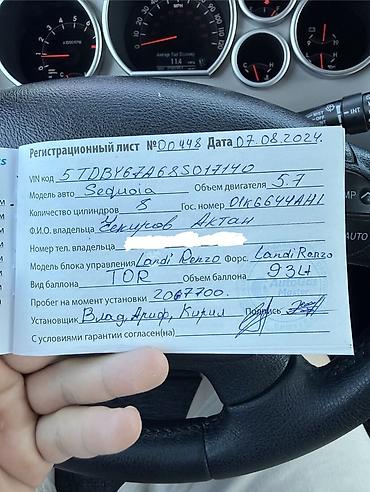 x1000RPM
MPH
Average Fuel Economy
11.4
Регистрационный лист №00448 Дата 07.08.2024.
VIN код 5TDBY67A68S017140
Модель авто Sequoia Объем двигателя 5.7
Количество цилиндров 8 Гос. номер 01KG644AHI
Ф.И.О. владельца Чекиров Актан
Номер тел. владельца
Модель блока управления Landi Renzo Форс. Landi Renzo
Вид баллона TOR Объем баллона 93Lt
Пробег на момент установки 2067700.
Установщик Влад, Ариф, Кирил Подпись
С условиями гарантии согласен(на)
INT